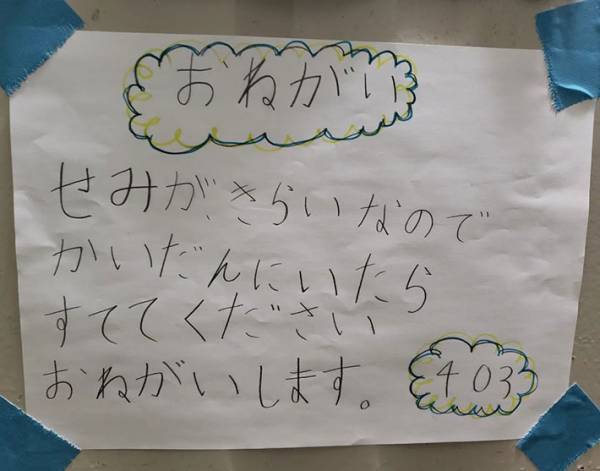 おねがい
せみが、きらいなので
かいだんにいたら
すててください
おねがいします。
403